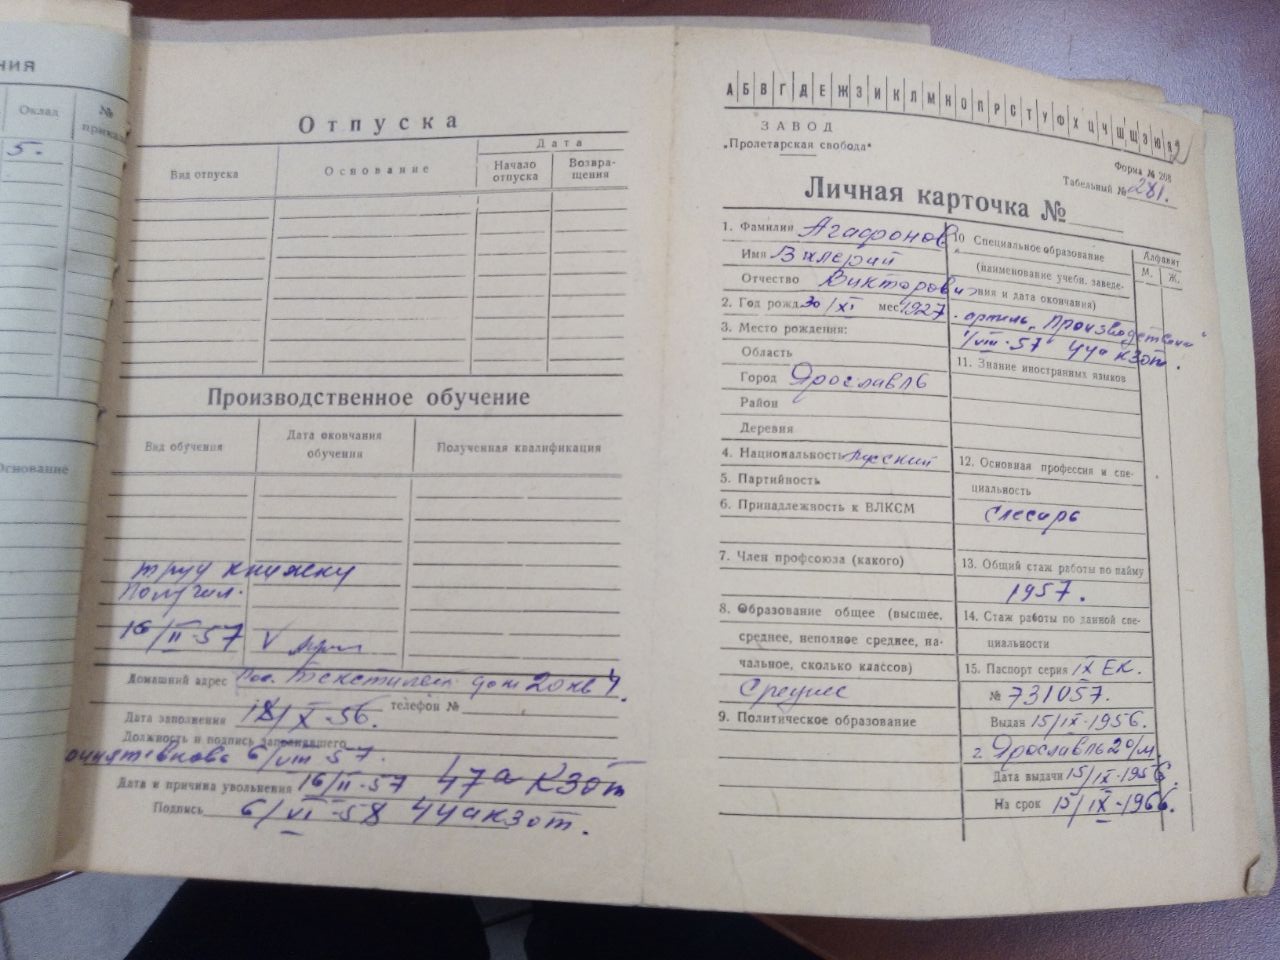 ния
Оклад
№ приказа
5.
Основание
Отпуска
Вид отпуска
Основание
Дата
Начало отпуска
Возвра-
щения
Производственное обучение
Вид обучения
Дата окончания
обучения
Полученная квалификация
труд книжку
получил.
16/II-57 V
Домашний адрес Пос. Текстилей дом 20 кв 4.
Дата заполнения 18/X-56. телефон №
Должность и подпись заполнившего
принят вновь 6/VIII 57.
Дата и причина увольнения 16/II-57 47а КЗОТ
Подпись 6/VI-58 44а кзот.
А Б В Г Д Е Ж З И К Л М Н О П Р С Т У Ф Х Ц Ч Ш Щ Э Ю Я
2
ЗАВОД
„Пролетарская свобода"
Форма № 268
Табельный № 281.
Личная карточка №
1. Фамилия Агафонов
Имя Валерий
Отчество Викторович
2. Год рожд. 30/XI мес. 1927.
3. Место рождения:
Область
Город Ярославль
Район
Деревня
4. Национальность русский
5. Партийность
6. Принадлежность к ВЛКСМ
7. Член профсоюза (какого)
8. Образование общее (высшее,
среднее, неполное среднее, на-
чальное, сколько классов)
Среднее
9. Политическое образование
10 Специальное образование
(наименование учебн. заведе-
ния и дата окончания)
Алфавит
М. Ж.
артель „Производственн"
1/VIII-57 44а КЗот.
11. Знание иностранных языков
12. Основная профессия и спе-
циальность
Слесарь
13. Общий стаж работы по найму
1957.
14. Стаж работы по данной спе-
циальности
15. Паспорт серия IX ЕК.
№ 731057.
Выдан 15/IX-1956.
г. Ярославль 2о/м.
Дата выдачи 15/IX-1956.
На срок 15/IX-1966.